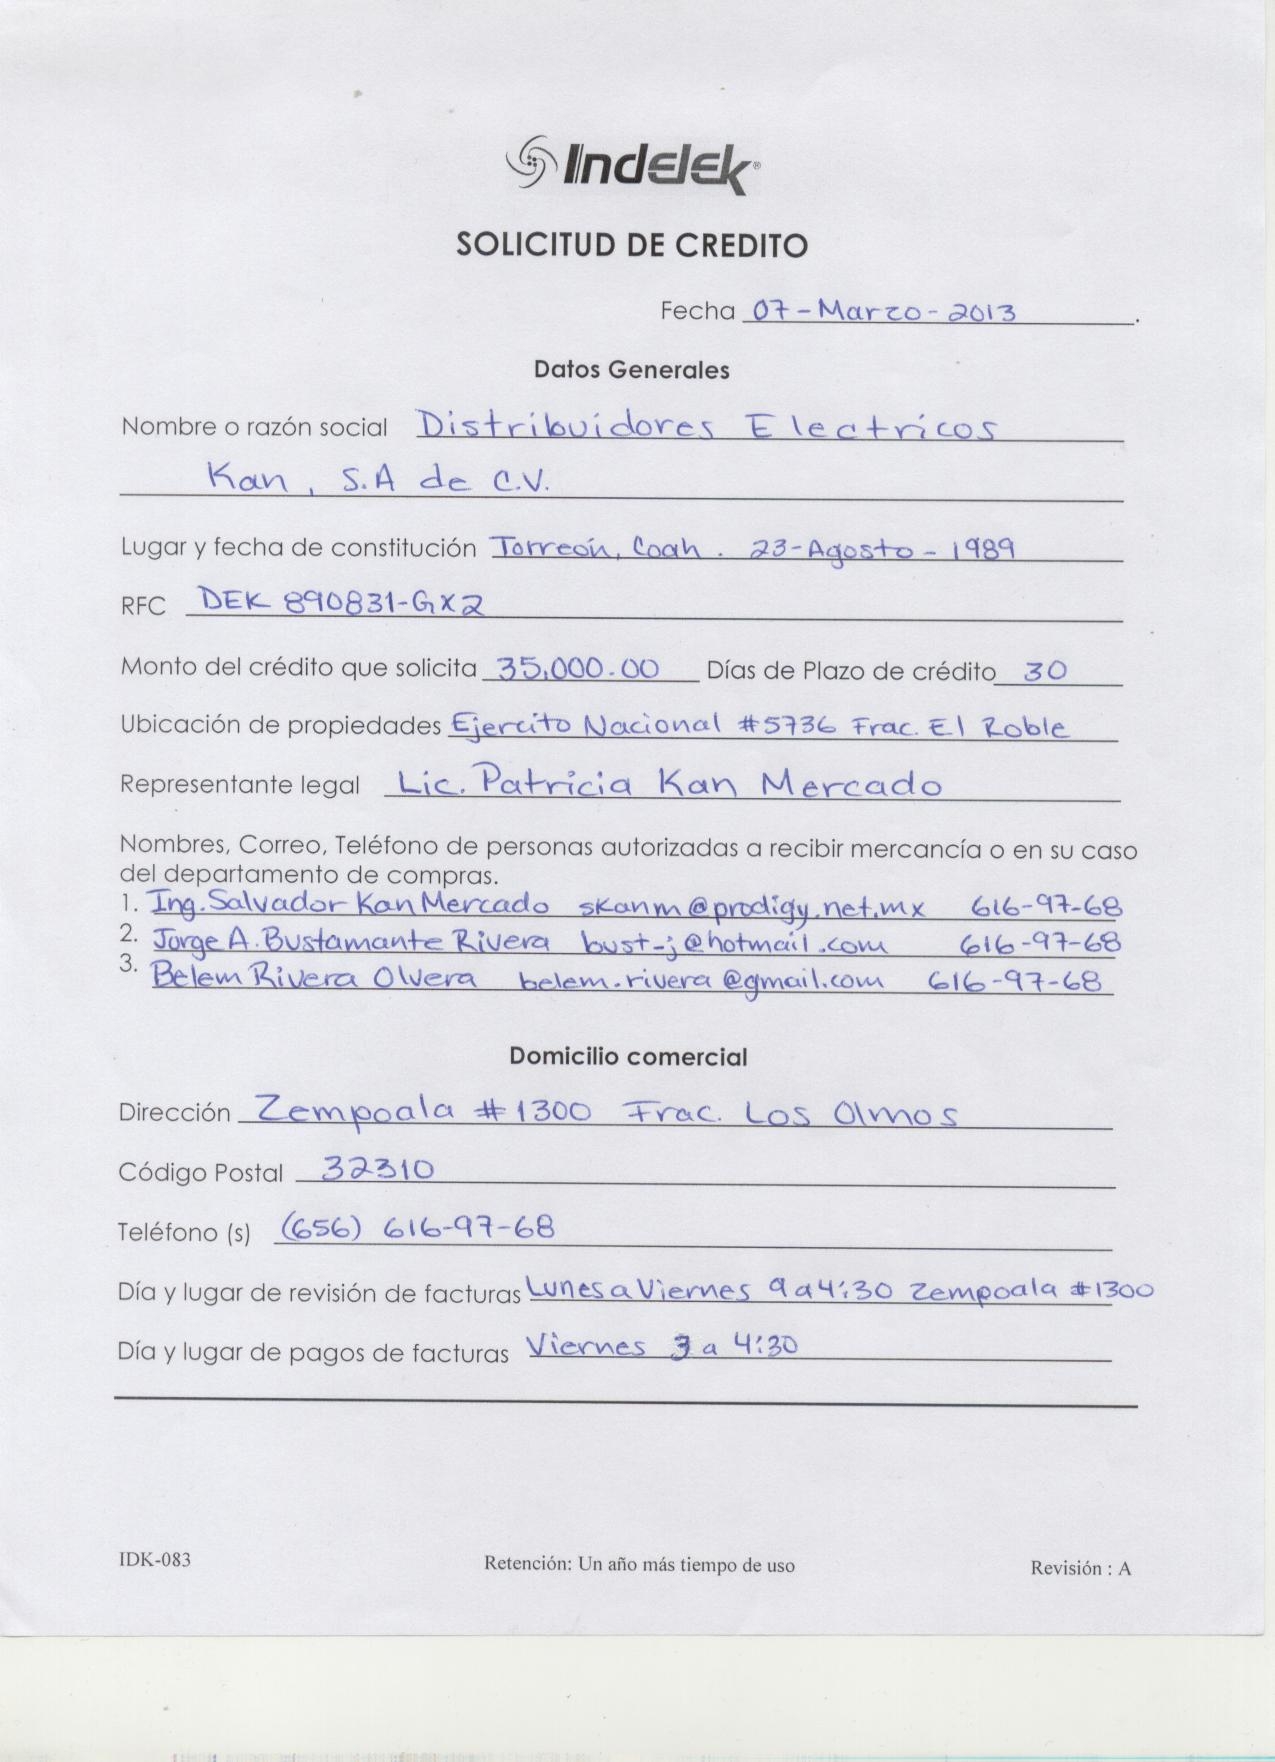 Indelek®
SOLICITUD DE CREDITO
Fecha 07-Marzo-2013.
Datos Generales
Nombre o razón social Distribuidores Electricos
Kan, S.A de C.V.
Lugar y fecha de constitución Torreón, Coah. 23-Agosto-1989
RFC DEK 890831-GX2
Monto del crédito que solicita 35,000.00 Días de Plazo de crédito 30
Ubicación de propiedades Ejercito Nacional #5736 Frac. El Roble
Representante legal Lic. Patricia Kan Mercado
Nombres, Correo, Teléfono de personas autorizadas a recibir mercancía o en su caso
del departamento de compras.
1. Ing. Salvador Kan Mercado skanm@prodigy.net.mx 616-97-68
2. Jorge A. Bustamante Rivera bust-j@hotmail.com 616-97-68
3. Belem Rivera Olvera belem.rivera@gmail.com 616-97-68
Domicilio comercial
Dirección Zempoala #1300 Frac. Los Olmos
Código Postal 32310
Teléfono (s) (656) 616-97-68
Día y lugar de revisión de facturas Lunes a Viernes 9 a 4:30 Zempoala #1300
Día y lugar de pagos de facturas Viernes 3 a 4:30
IDK-083 Retención: Un año más tiempo de uso Revisión : A